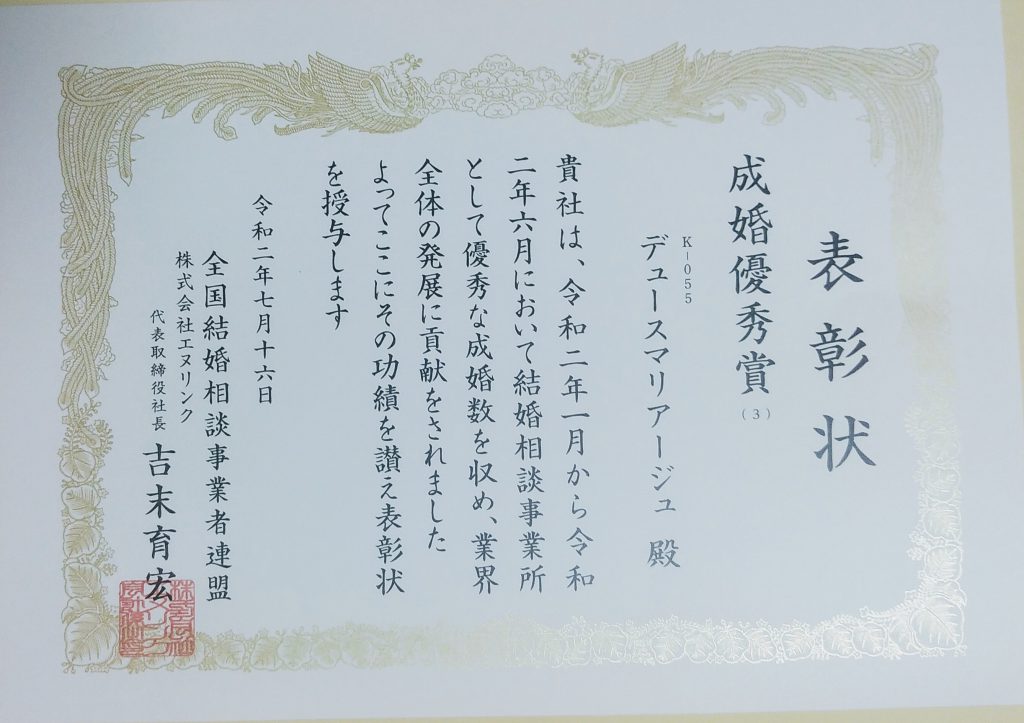 表彰状
成婚優秀賞(3)
K-055
デュースマリアージュ 殿
貴社は、令和二年一月から令和
二年六月において結婚相談事業所
として優秀な成婚数を収め、業界
全体の発展に貢献をされました
よってここにその功績を讃え表彰状
を授与します
令和二年七月十六日
全国結婚相談事業者連盟
株式会社エヌリンク
代表取締役社長 吉末育宏